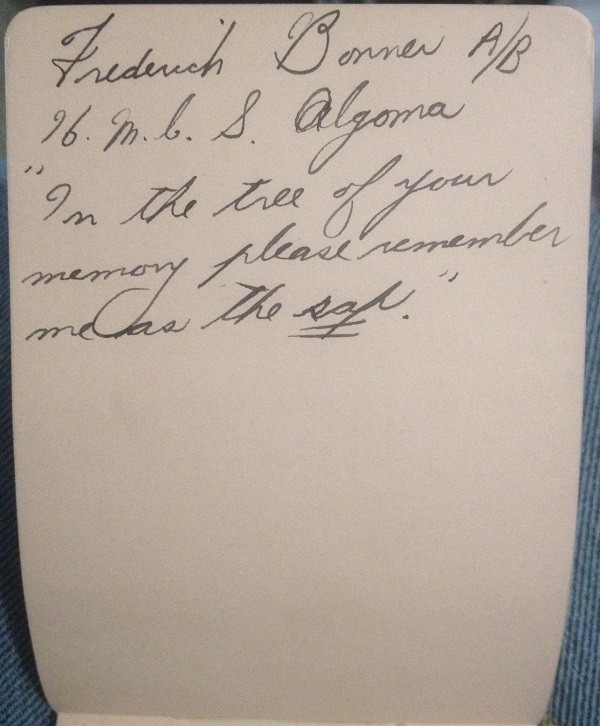 Frederick Bonner A/B
H.M.C.S. Algoma
"In the tree of your
memory please remember
me as the sap."